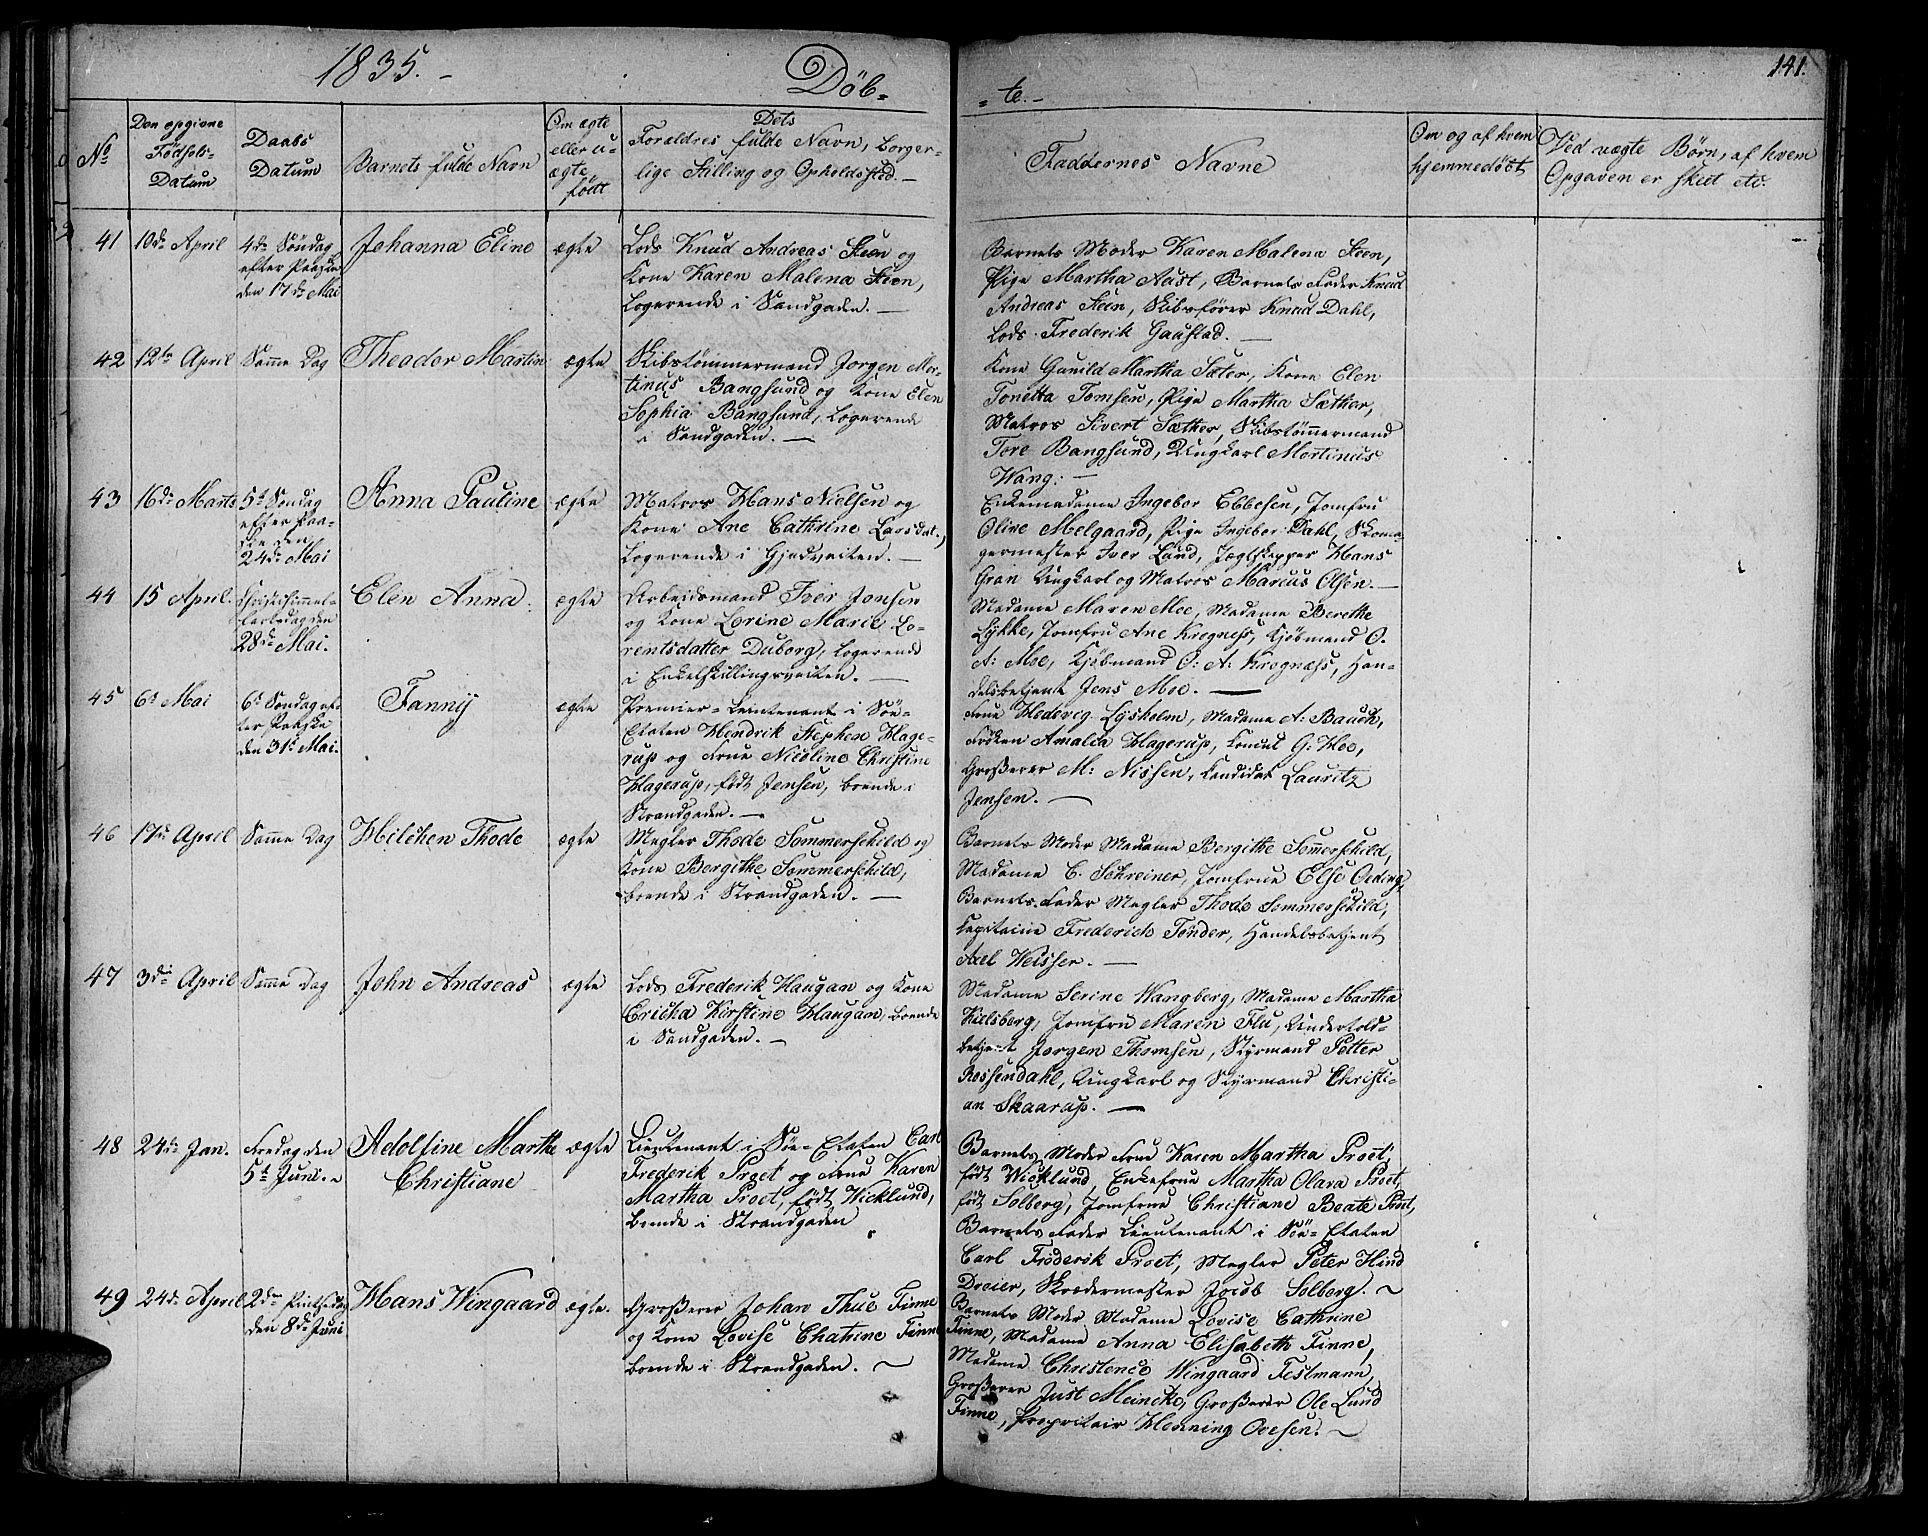 1835.-
Döb-
-te.-
141.
No
Den opgivne
Födsels-
Datum
Daabs
Datum
Barnets fulde Navn
Om ægte
eller u-
ægte
født
Dets
Forældres fulde Navn, borger-
lige Stilling og Opholdssted.-
Faddernes Navne
Om og af hvem
hjemmedöbt
Ved uægte Börn, af hvem
Opgaven er skeet etc.
41
10de April
4de Söndag
efter Paaske
den 17de Mai
Johanna Eline
ægte
Lods Knud Andreas Steen og
Kone Karen Malena Steen,
logerende i Sandgaden.-
Barnets Moder Karen Malena Steen,
Pige Martha Aast, Barnets Fader Knud
Andreas Steen, Skibsförer Knud Dahl,
Lods Frederik Gaustad.-
42
12te April
Samme Dag
Theodor Martin
ægte
Skibstömmermand Jorgen Mor-
tinus Bangsund og Kone Elen
Sophia Bangsund, logerende
i Sandgaden.-
Kone Gunild Martha Sæter, Kone Elen
Tonetta Tomsen, Pige Martha Sæther,
Matros Sivert Sæther, Skibstömmermand
Tore Bangsund, Ungkarl Mortinus
Wang.-
43
16de Marts
5te Söndag
efter Paa-
ske den
24de Mai
Anna Pauline
ægte
Matros Hans Nielsen og
Kone Ane Cathrine Larsdat.,
logerende i Gjedveiten.-
Enkemadame Ingebor Ebbesen, Jomfru
Oline Melgaard, Pige Ingebor Dahl, Skoma-
germester Iver Lund, Jægtskipper Hans
Gran Ungkarl og Matros Marcus Olsen.-
44
15 April.
Christihimmel-
fartsdag den
28de Mai.
Elen Anna.
ægte
Arbeidsmand Iver Jonsen
og Kone Lorine Marie Lo-
rentsdatter Duborg, logerende
i Enkelskillingsveiten.-
Madame Maren Moe, Madame Berethe
Lykke, Jomfru Ane Krogness, Kjöbmand O.
A: Moe, Kjöbmand O: A: Krogness, Han-
delsbetjent Jens Moe.-
45
6te Mai
6te Söndag ef-
ter Paaske
den 31te Mai.
Fanny
ægte
Premier-Lieutenant i Söe-
Etaten Hendrik Stephen Hage-
rup og Frue Nicoline Christine
Hagerup, födt Jensen, boende i
Strandgaden.-
Frue Hedevig Lysholm, Madame A: Bauck,
Fröken Amalia Hagerup, Consul G: Hoe,
Grosserer M: Nissen, Candidat Lauritz
Jensen.-
46
17de April
Samme Dag
Hilchen Thode
ægte
Megler Thode Sommerschild og
Kone Bergithe Sommerschild,
boende i Strandgaden.-
Barnets Moder Madame Bergithe Sommerschild,
Madame C. Schreiner, Jomfrue Else Oeding,
Barnets Fader Megler Thode Sommerschild,
Capitaine Frederich Tonder, Handelsbetjent
Axel Weisser.-
47
3die April
Samme Dag
John Andreas
ægte
Lods Frederik Haugan og Kone
Ericka Kirstine Haugan, boende
i Sandgaden.-
Madame Serine Wangberg, Madame Martha
Kielsberg, Jomfru Maren Flu, Undertold-
betjent Jorgen Thomsen, Styrmand Petter
Rossendahl, Ungkarl og Styrmand Christi-
an Skaarup.-
48
24de Jan.
Fredag den
5te Juni.
Adolfine Marthe
Christiane
ægte
Lieutenant i Söe-Etaten Carl
Frederik Proet og Frue Karen
Martha Proet, födt Wicklund,
boende i Strandgaden
Barnets Moder Frue Karen Martha Proet,
födt Wicklund, Enkefrue Martha Olava Proet,
födt Solberg, Jomfrue Christiane Beate Proet,
Barnets Fader Lieutenant i Söe-Etaten
Carl Frederik Proet, Megler Peter Hind
Dreier, Skrædermester Jacob Solberg.
49
24de April
2den Pintsedag
den 8de Juni
Hans Wingaard
ægte.
Grosserer Johan Thue Finne
og Kone Lovise Chatrine Finne
boende i Strandgaden.
Barnets Moder Madame Lovise Cathrine
Finne, Madame Anna Elisabeth Finne,
Madame Christence Wingaard Festmann,
Grosserer Just Meincke, Grosserer Ole Lund
Finne, Propritair Henning Ovesen.